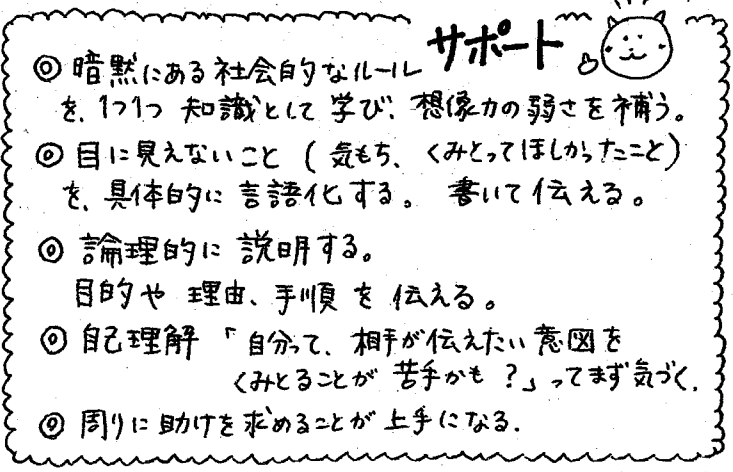 サポート
◎ 暗黙にある社会的なルール
を、1つ1つ 知識として 学び、想像力の弱さを補う。
◎ 目に見えないこと（気もち、くみとってほしかったこと）
を、具体的に 言語化する。 書いて伝える。
◎ 論理的に 説明する。
目的や 理由、手順 を 伝える。
◎ 自己理解 「自分って、相手が伝えたい意図を
くみとることが 苦手かも？」ってまず気づく.
◎ 周りに助けを求めることが 上手になる.